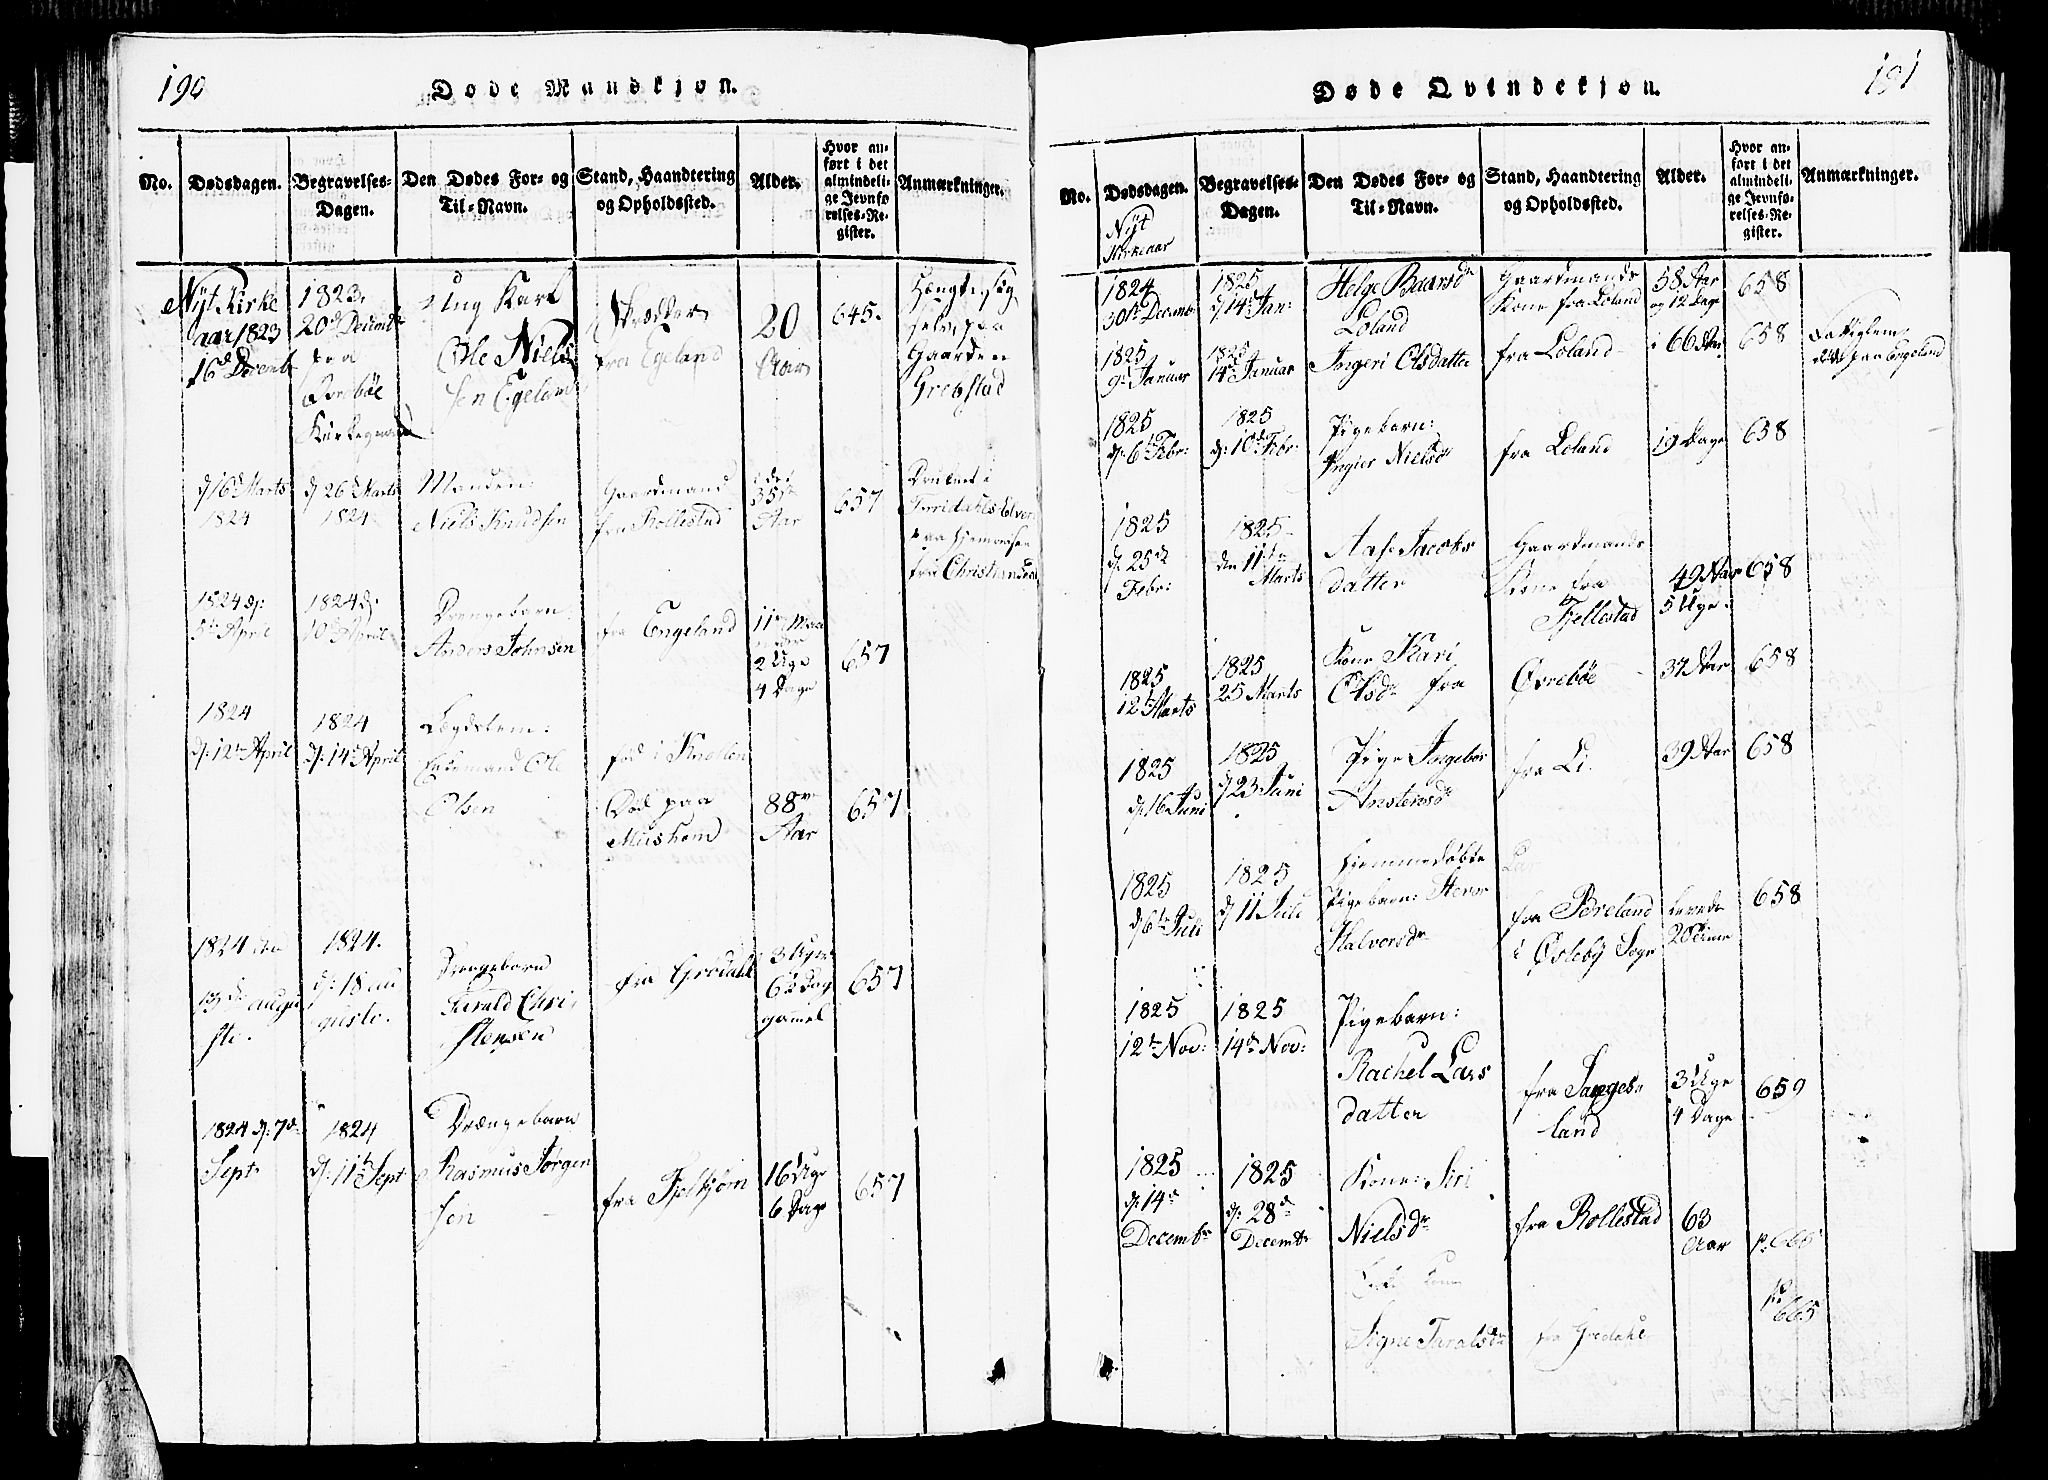 190
Døde Mandkjøn.
No.
Dødsdagen.
Begravelses-
Dagen.
Den Dødes For- og
Til-Navn.
Stand, Haandtering
og Opholdssted.
Alder.
Hvor an-
ført i det
almindeli-
ge Jevnfø
relses-Re-
gister.
Anmærkninger.
Nyt Kirke
aar 1823
16de Decembr
1823.
20de Decembr
paa
Øvrebøe
Kirkegaard
Ung Karl
Ole Niels
sen Egeland
Skrædder
fra Egeland
20
Aar
645.
Hængte sig
selv paa
Gaarden
Grebstad
d 16de Marts
1824
d 26de Marts
1824
Manden:
Niels Knudsen
Gaardmand
fra Rollestad
35te
Aar
657
Druknet i
Torridahls Elven
paa hjemreisen
fra Christiansand
1824 d:
5te April
1824 d:
10de April
Drængebarn
Anders Johnsen
fra Engeland
11 Maa
neder
2 Uge
4 Dage
657
1824
d: 12te April
1824
d: 14de April
Lægdslem:
Enkemand Ole
Olsen
fød i Knollen
Død paa
Mushom
88
Aar
657
1824 den
13de Augu
sti.
1824.
d: 18 Au
gusti.
Drengebarn
Tarald Chri
stensen
fra Grødahl
3 Uger
6 Dag
gammel
657
1824 d: 7de
Septr
1824
d: 11te Sept
Drængebarn
Rasmus Jørgen
sen
fra Fjelkjøn
16 Uge
6 Dage
657
191
Døde Qvindekjøn.
No.
Dødsdagen.
Begravelses-
Dagen.
Den Dødes For- og
Til-Navn.
Stand, Haandtering
og Opholdssted.
Alder.
Hvor an-
ført i det
almindeli-
ge Jevnfø-
relses-Re-
gister.
Anmærkninger.
Nyt
Kirkeaar
1824
30te Decemb
1825
d 14de Jan:
Helge Baarsdr
Loland
Gaardmands
Kone fra Loland
58 Aar
og 12 Dage
658
1825
9de Januar
1825
14de Januar
Ingeri Olsdatter
fra Loland
66 Aar
658
Fattiglem:
død paa Engeland
1825
d: 6te Febr:
1825
d: 10de Febr:
Pigebarn:
Ingier Nielsdr
fra Loland
19 Dage
658
1825
d: 25de
Febr:
1825
den 11te
Marts
Aase Jacobs
datter
Gaardmands
Kone fra
Fjellestad
49 Aar
5 Uger
658
1825
12te Marts
1825
25 Marts
Kone Kari
Olsdr fra
Øvrebøe
37 Aar
658
1825
d: 16 Juni
1825
d 23 Juni
Pige Ingebor
Anstensdr
fra Li.
39 Aar
658
1825
d 6te Juli
1825
d 11 Juli
Hjemmedøbte
Pigebarn:
Halvorsdr
fra Breland
i Øsleby Sogn
levede
20 Timer
658
1825
12te Nov:
1825
14de Nov:
Pigebarn:
Rachel Lars
datter
fra Sanges-
land
3 Uge
4 Dage
659
1825
d: 14de
Decembr
1825
d: 28de
Decembr
Kone: Siri
Nielsdr
fra Rollestad
63
Aar
Signe Taralsdr
fra Grødahl
665